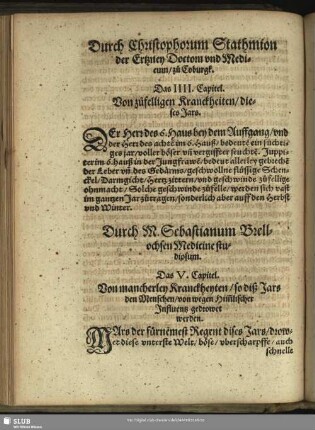 Durch Christophorum Stathmion
der Ertzney Doctorn vnd Medi-
cum/ zů Coburgk.
Das IIII. Capitel.
Von zůfelligen Kranckheiten/ die-
ses Jars.
DEr Herr des 6. Haus bey dem Auffgang/ vnd
der Herr des acht im 6. Hauß/ bedeut ein süchti-
ges jar/ voller böser vñ vergiffter seuchē. Juppi-
ter im 6. hauß in der Jungfraw/ bedeut allerley gebrechē
der Leber vñ des Gedärms/ geschwollne flüssige Schen-
ckel/ Darmgicht/ Hertz zittern/ vnd geschwinde zůfellige
ohnmacht/ Solche geschwinde zůfelle/ werden sich vast
im gantzen Jar zůtragen/ sonderlich aber auff den Herbst
vnd Winter.
Durch M. Sebastianum Brell-
ochsen Medicine stu-
diosum.
Das V. Capitel.
Von mancherley Kranckheyten/ so diß Jars
den Menschen/ von wegen Himlischer
Influentz gedrowet
werden.
MArs der fürnemest Regent dises Jars/ drow-
et diese vnterste Welt/ böse/ vberscharpffe/ auch
schnelle
SLUB